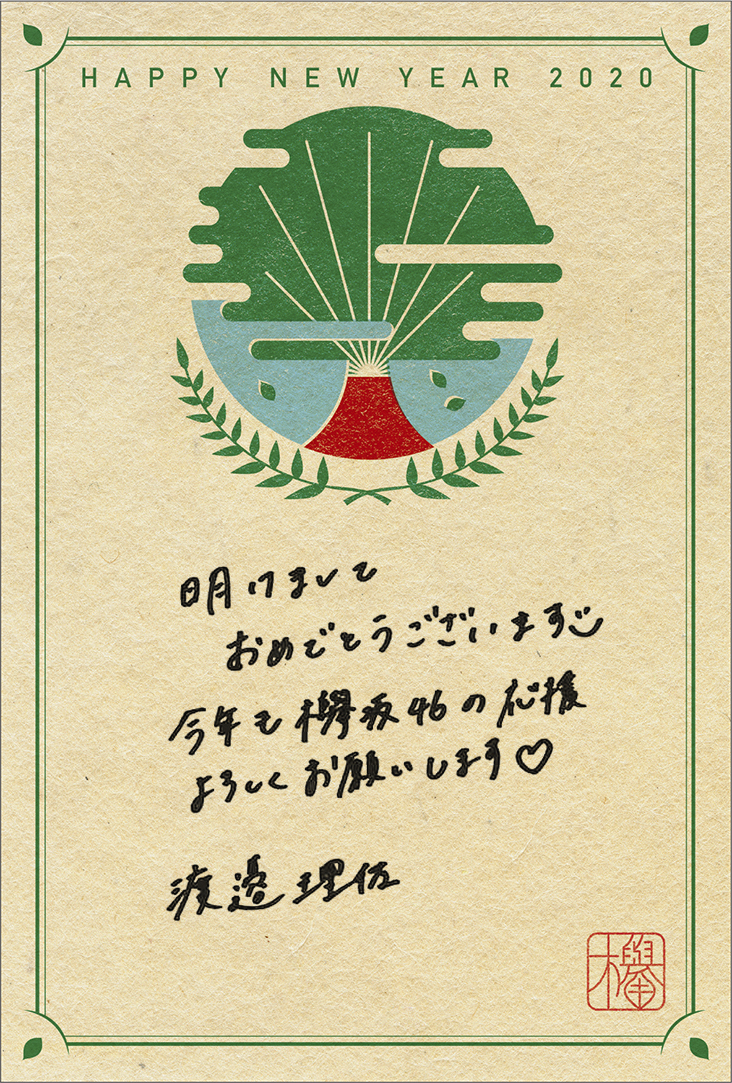 HAPPY NEW YEAR 2020
明けまして
おめでとうございます
今年も欅坂46の応援
よろしくお願いします♡
渡邉理佐
欅